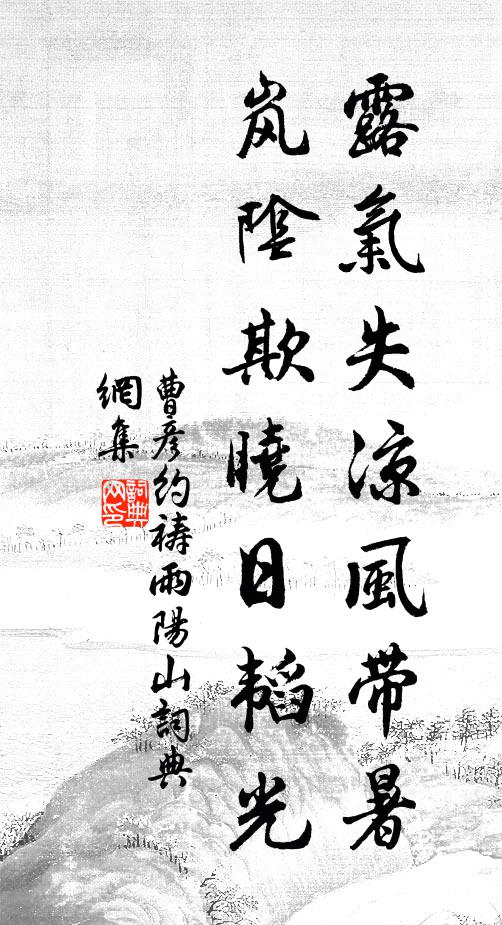 露氣失涼風帶暑
岚陰欺曉日韬光
曹彦约祷雨陽山詞典
網集
詞典
网印